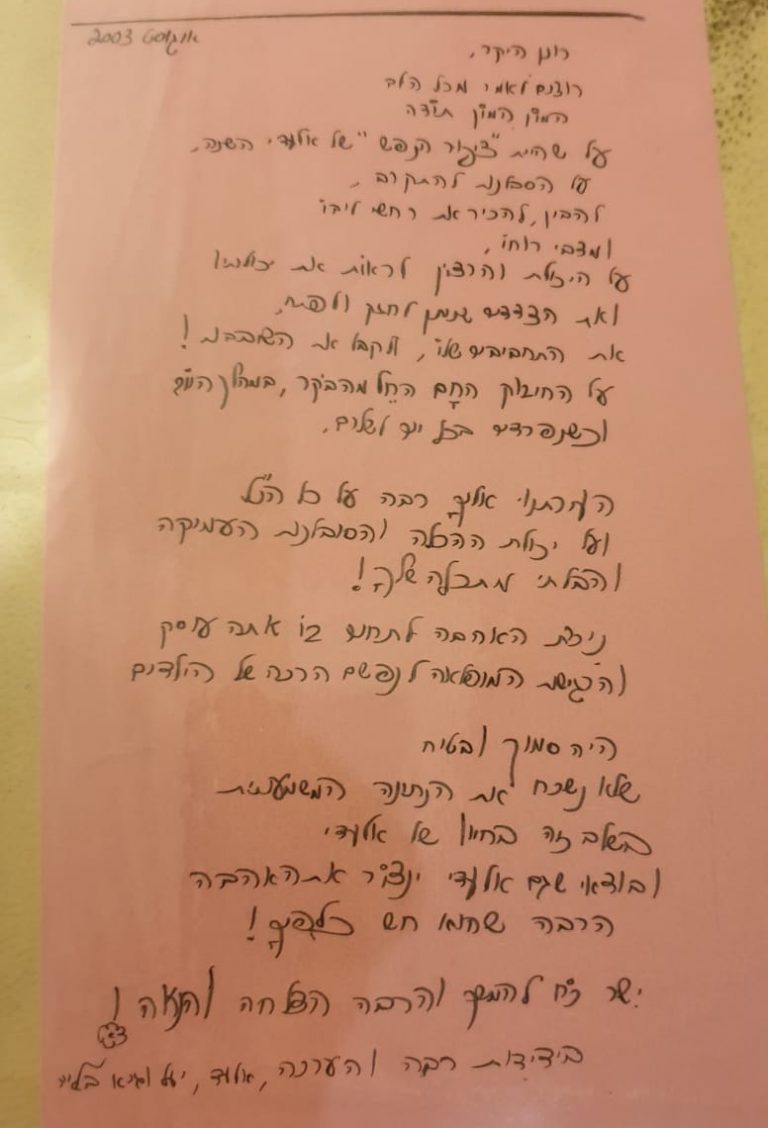 אוגוסט 2003
רונן היקר,
רוצים לאמר מכל הלב
המון המון תודה
על שהיית "צינור הנפש" של אלעדי השנה,
על הסבלנות להתקרב,
להבין, להכיר את רחשי ליבו
ומצבי רוחו,
על היכולת והרצון לראות את יכולתיו
ואת הצדדים שניתן לחזק ולפתח,
את התחביבים שלו, ולקבל את השובבות!
על החיבוק החָם החֵל מהבוקר, במהלך היום
וכשנפרדים בכל יום לשלום.
הערכתנו אליךָ רבה על כל הנ"ל
ועל יכולת ההכלה והסובלנות העמיקה
והבלתי מתכלה שלךָ!
ניכרת האהבה לתחום בו אתה עוסק
והרגישות המופלאה לנפשם הרכה של הילדים
היה סמוך ובטוח
שלא נשכח את הנתינה המשמעותית
בשלב זה בחייו של אלעדי
ובודאי שגם אלעדי ינצור את האהבה
הרבה שהוא חש כלפיךָ!
ישר כח להמשך והרבה הצלחה והנאה!
בידידות רבה והערכה, אלעד, יעל